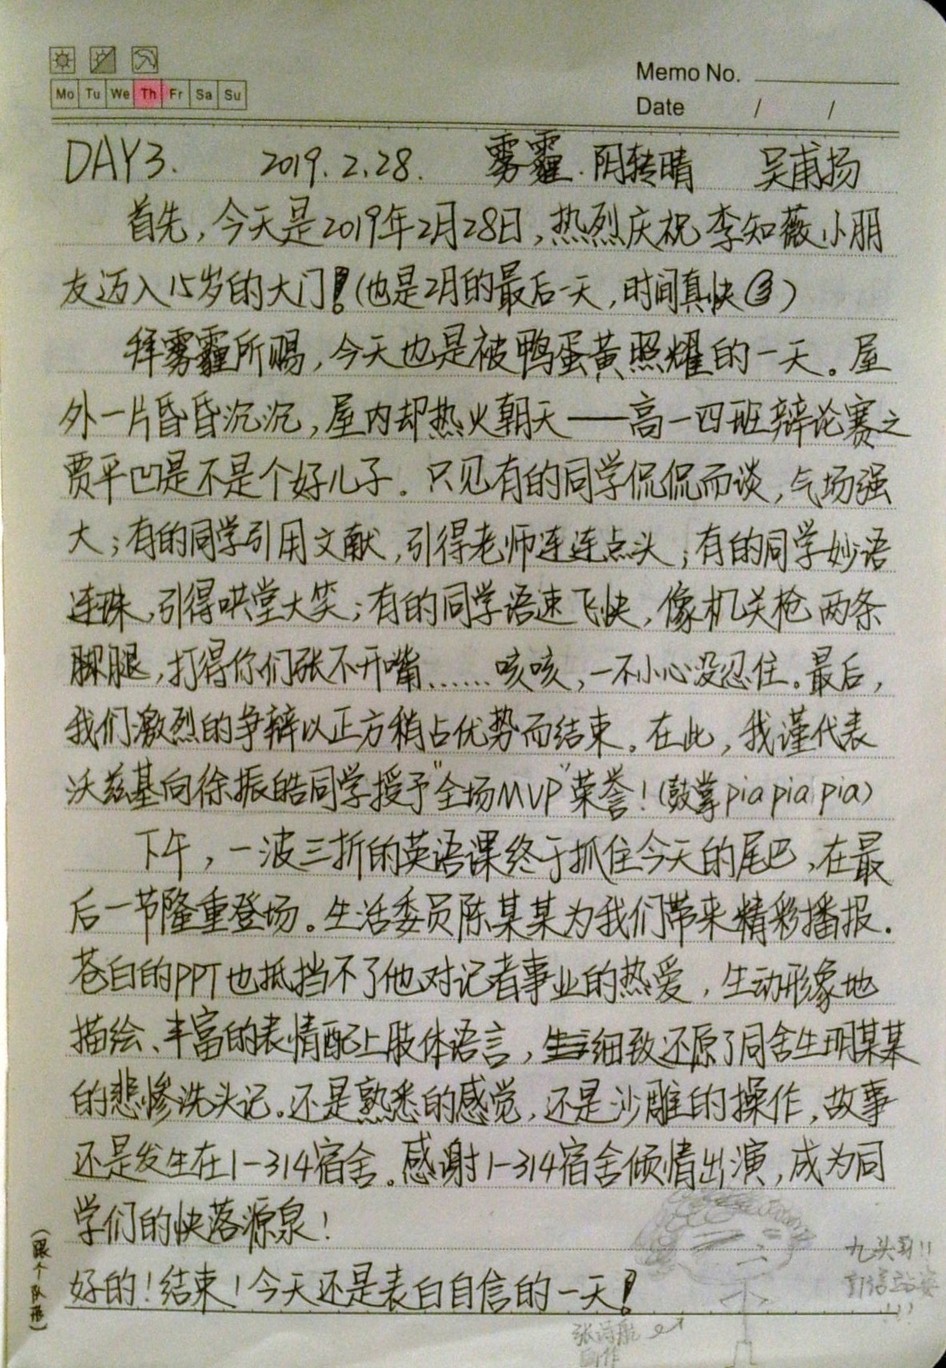 Memo No.
Mo Tu We Th Fr Sa Su
Date / /
DAY3. 2019.2.28. 雾霾.阴转晴 吴甫扬
首先,今天是2019年2月28日,热烈庆祝李知薇小朋
友迈入15岁的大门!(也是2月的最后一天,时间真快)
拜雾霾所赐,今天也是被鸭蛋黄照耀的一天。屋
外一片昏昏沉沉,屋内却热火朝天——高一四班辩论赛之
贾平凹是不是个好儿子。只见有的同学侃侃而谈,气场强
大;有的同学引用文献,引得老师连连点头;有的同学妙语
连珠,引得哄堂大笑;有的同学语速飞快,像机关枪两条
腿,打得你们张不开嘴……咳咳,一不小心没忍住。最后,
我们激烈的争辩以正方稍占优势而结束。在此,我谨代表
沃兹基向徐振皓同学授予"全场MVP"荣誉!(鼓掌pia pia pia)
下午,一波三折的英语课终于抓住今天的尾巴,在最
后一节隆重登场。生活委员陈某某为我们带来精彩播报.
苍白的PPT也抵挡不了他对记者事业的热爱,生动形象地
描绘、丰富的表情配上肢体语言,细致还原了同舍生明某某
的悲惨洗头记.还是熟悉的感觉,还是沙雕的操作,故事
还是发生在1-314宿舍。感谢1-314宿舍倾情出演,成为同
学们的快落源泉!
好的!结束!今天还是表白自信的一天!
(跟个队形)
九头身!!
!!!